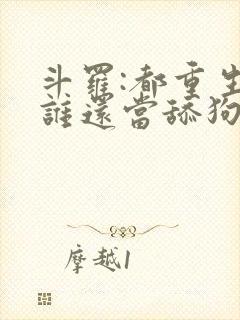 斗羅:都重生
誰還當舔狗
摩越1